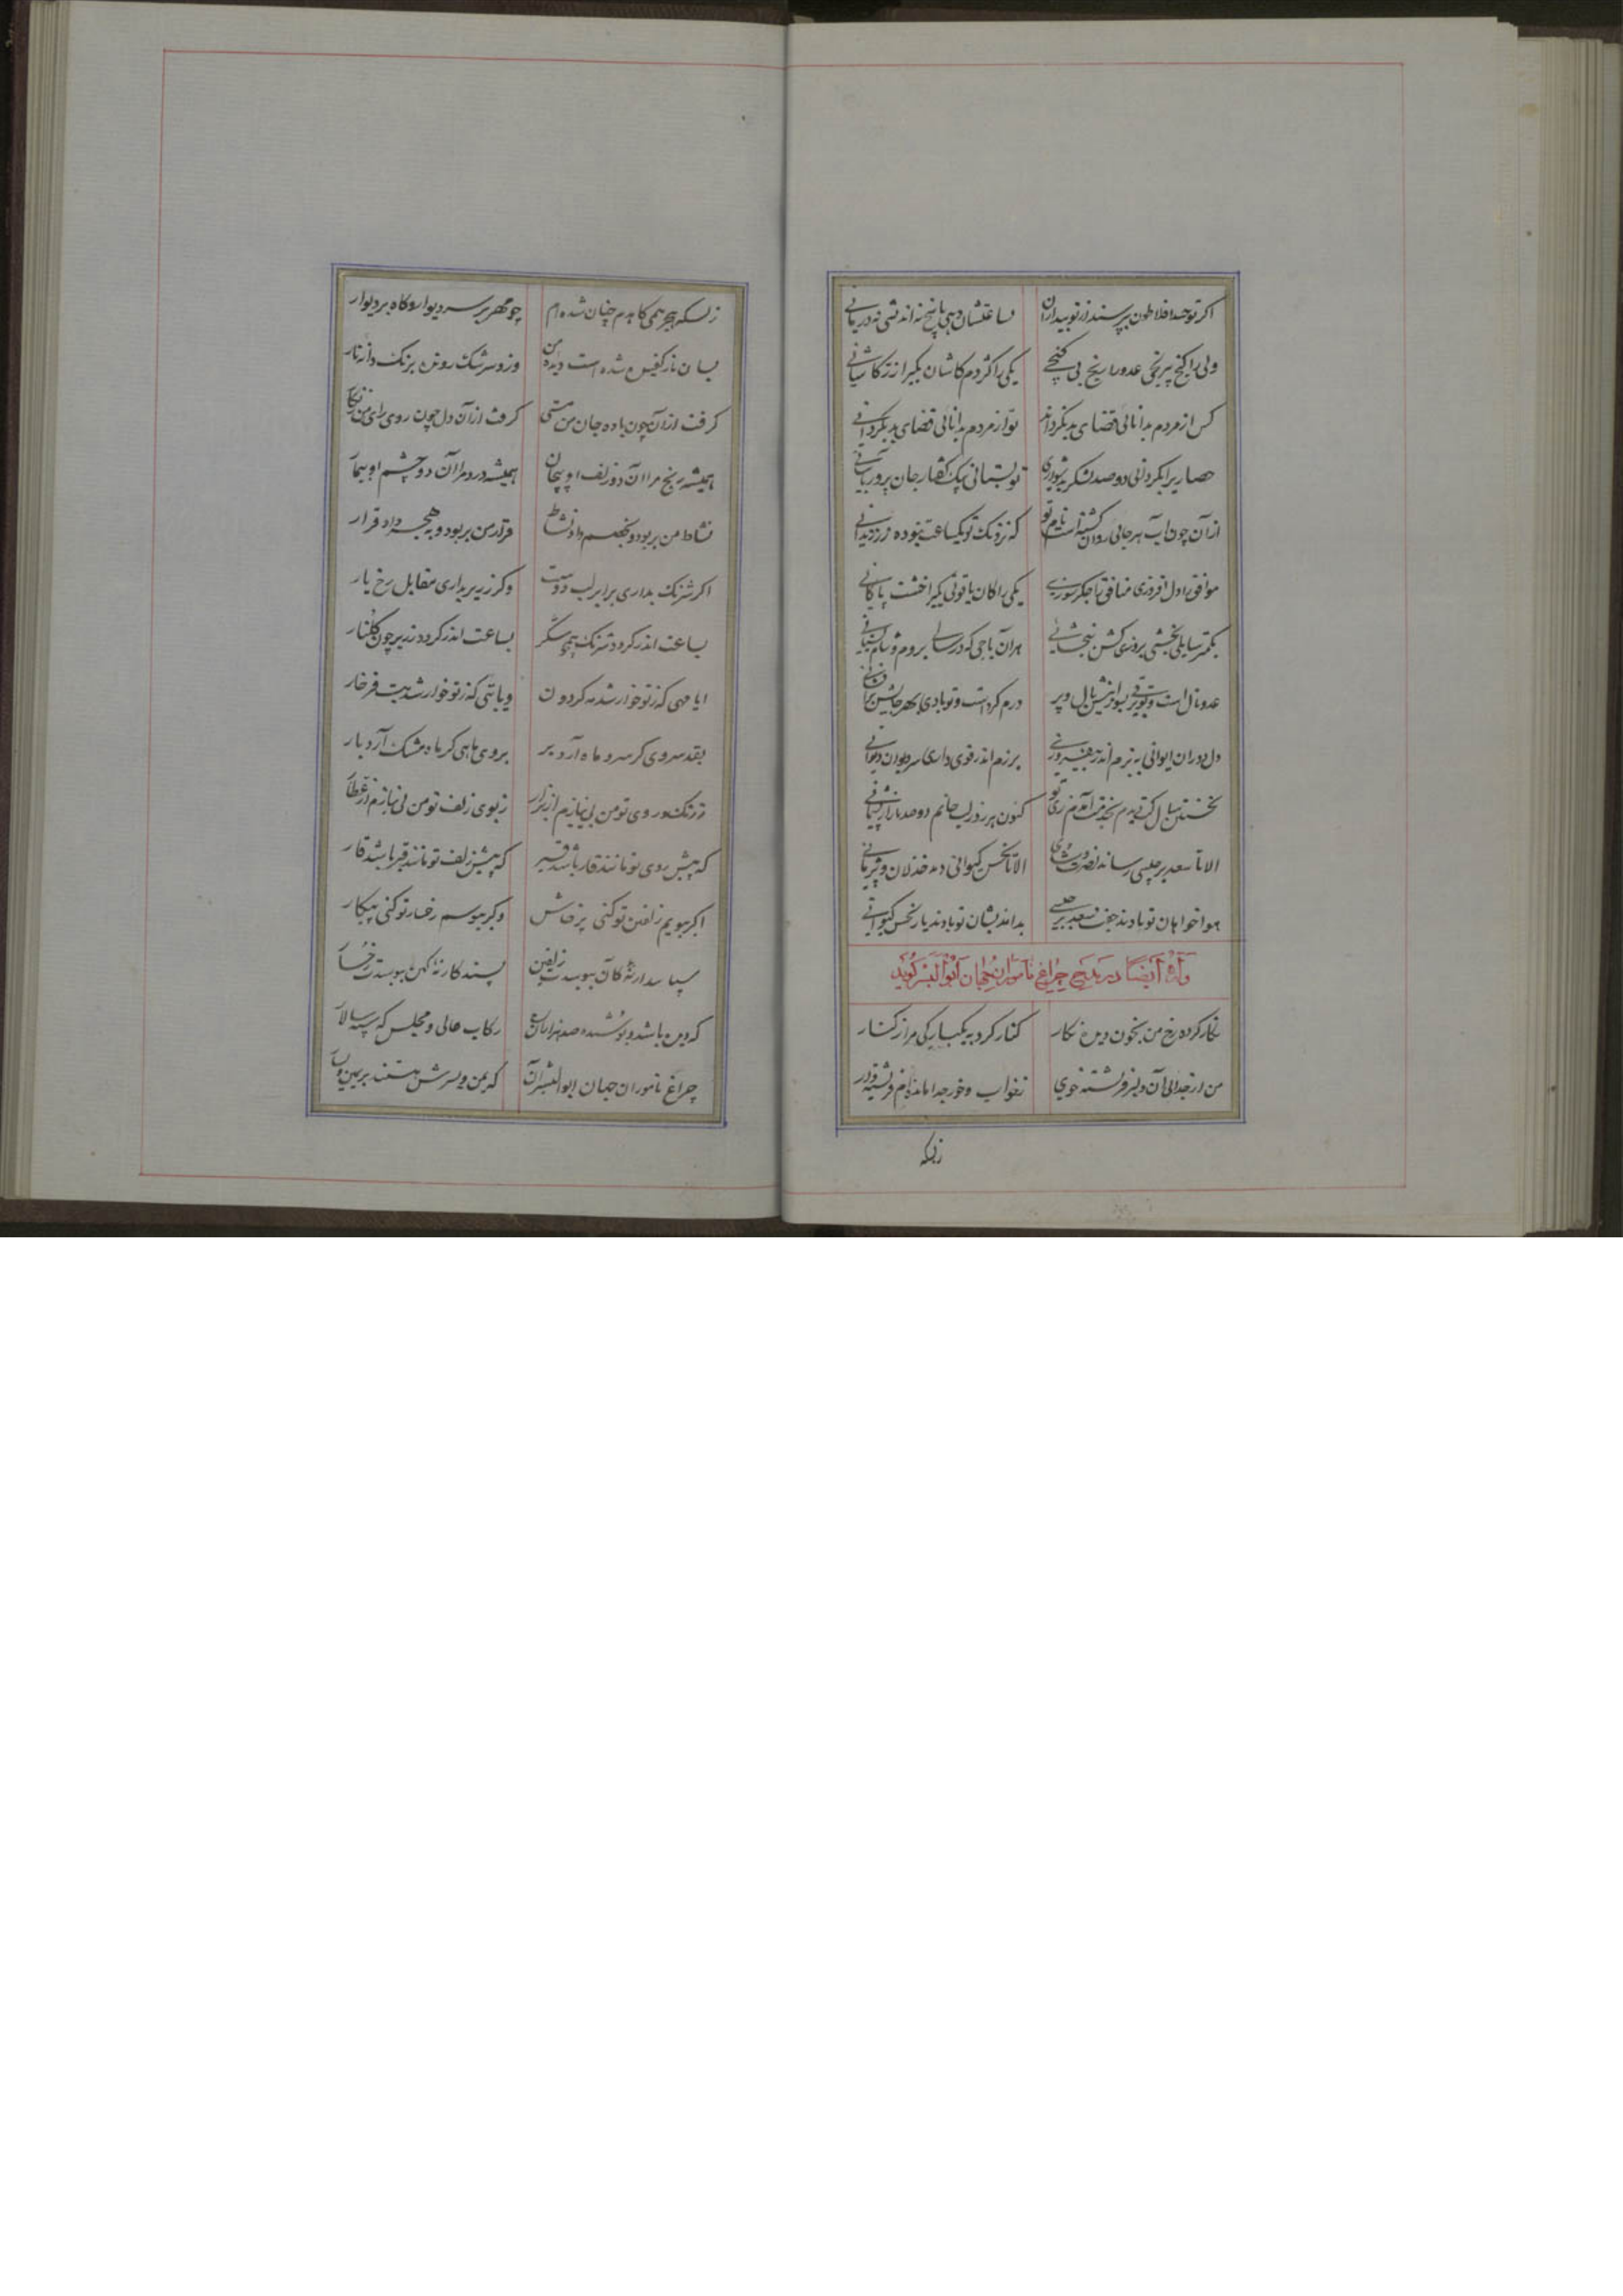 اگر توحید افلاطون بپرسند از تو بیداران بساعتشان دهی پاسخ نه اندیشی نه درمانی
ولی را گنج بی رنجی عدو را رنج بی گنجی یکی را کژدم کاشان یکی را زر کاشانی
کس از مردم بدانائی قضای بد نگرداند تو از مردم بدانائی قضای بد بگردانی
حصاریرا بگردانی دو صد لشکر بدشواری تو بستانی بیک گفتار جان پرور بآسانی
از آن چون آب هر جائی روان گشته است نام تو که نزدیک تو یکساعت نبوده زر زندانی
موافق را دل افروزی منافق را جگر سوزی یکی را کان یاقوتی یکی را خشت پیکانی
بکمتر سایلی بخشی بروزی کش نبخشائی هر آن باجی که در سالی بروم و شام بستانی
عدو نال است و تو آذر بسوزانیش بال و پر درم گرد است و تو بادی بهر جائیش برانی
دل دوران ایوانی ببزم اندر بفیروزی برزم اندر قوی داری سر دیوان دیوانی
نخستین سال کت دیدم بخدمت آمدم زی تو کنون هر روز لب خایم دو صد بار از پشیمانی
الا تا سعد برجیسی رساند نصرت و شادی الا تا نحس کیوانی دهد خذلان و پژمانی
هوا خواهان تو بادند جفت سعد برجیسی بداندیشان تو بادند یار نحس کیوانی
وله ایضا در مدح چراغ ناموران جهان ابوالبشر گوید
نگار کرده رخ من بخون دیده نگار کنار کرد به یکبارگی مرا ز کنار
من از جدائی آن دلبر فرشته خوی ز خواب و خور جدا مانده‌ام فرشته‌وار
زبسکه
زبسکه بهجر همی کاهدم چنان شده‌ام چو مهر بر سر دیوار و کاه بر دیوار
بسان نار کفیده شده است دیده من وزو سرشک روان برنگ دانه نار
گرفت از آن چون باده جان من مستی گرفت از آن دل چون روی رای من زنگار
همیشه رنج مرا آن دو زلف او پیچان همیشه درد مرا آن دو چشم او بیمار
نشاط من بربود و بغم داد نشاط قرار من بربود و به هجر داد قرار
اگر شرنگ بداری برابر لب دوست وگر زریر بداری مقابل رخ یار
بساعت اندر گردد شرنگ همچو شکر بساعت اندر گردد زریر چون گلنار
ایا مهی که ز تو خوار شد مه گردون و یا بتی که ز تو خوار شد بت فرخار
بقد سروی گر سرو ماه آرد بر بروی ماهی گر ماه مشک آرد بار
ز رنگ روی تو من بی نیازم از گلزار ز بوی زلف تو من بی نیازم از عطار
که پیش روی تو مانند قار باشد قیر که پیش زلف تو مانند قیر باشد قار
اگر ببویم زلفین تو کنی پرخاش وگر ببوسم رخسار تو کنی پیکار
پسندکار نه کان ببوسدت زلفین پسندکار نه کهن ببوسدت رخسار
رکاب عالی و مجلس که سپه سالار
چراغ ناموران جهان ابوالبشر آن که یمن و یسرش هستند بر یمین و یسار